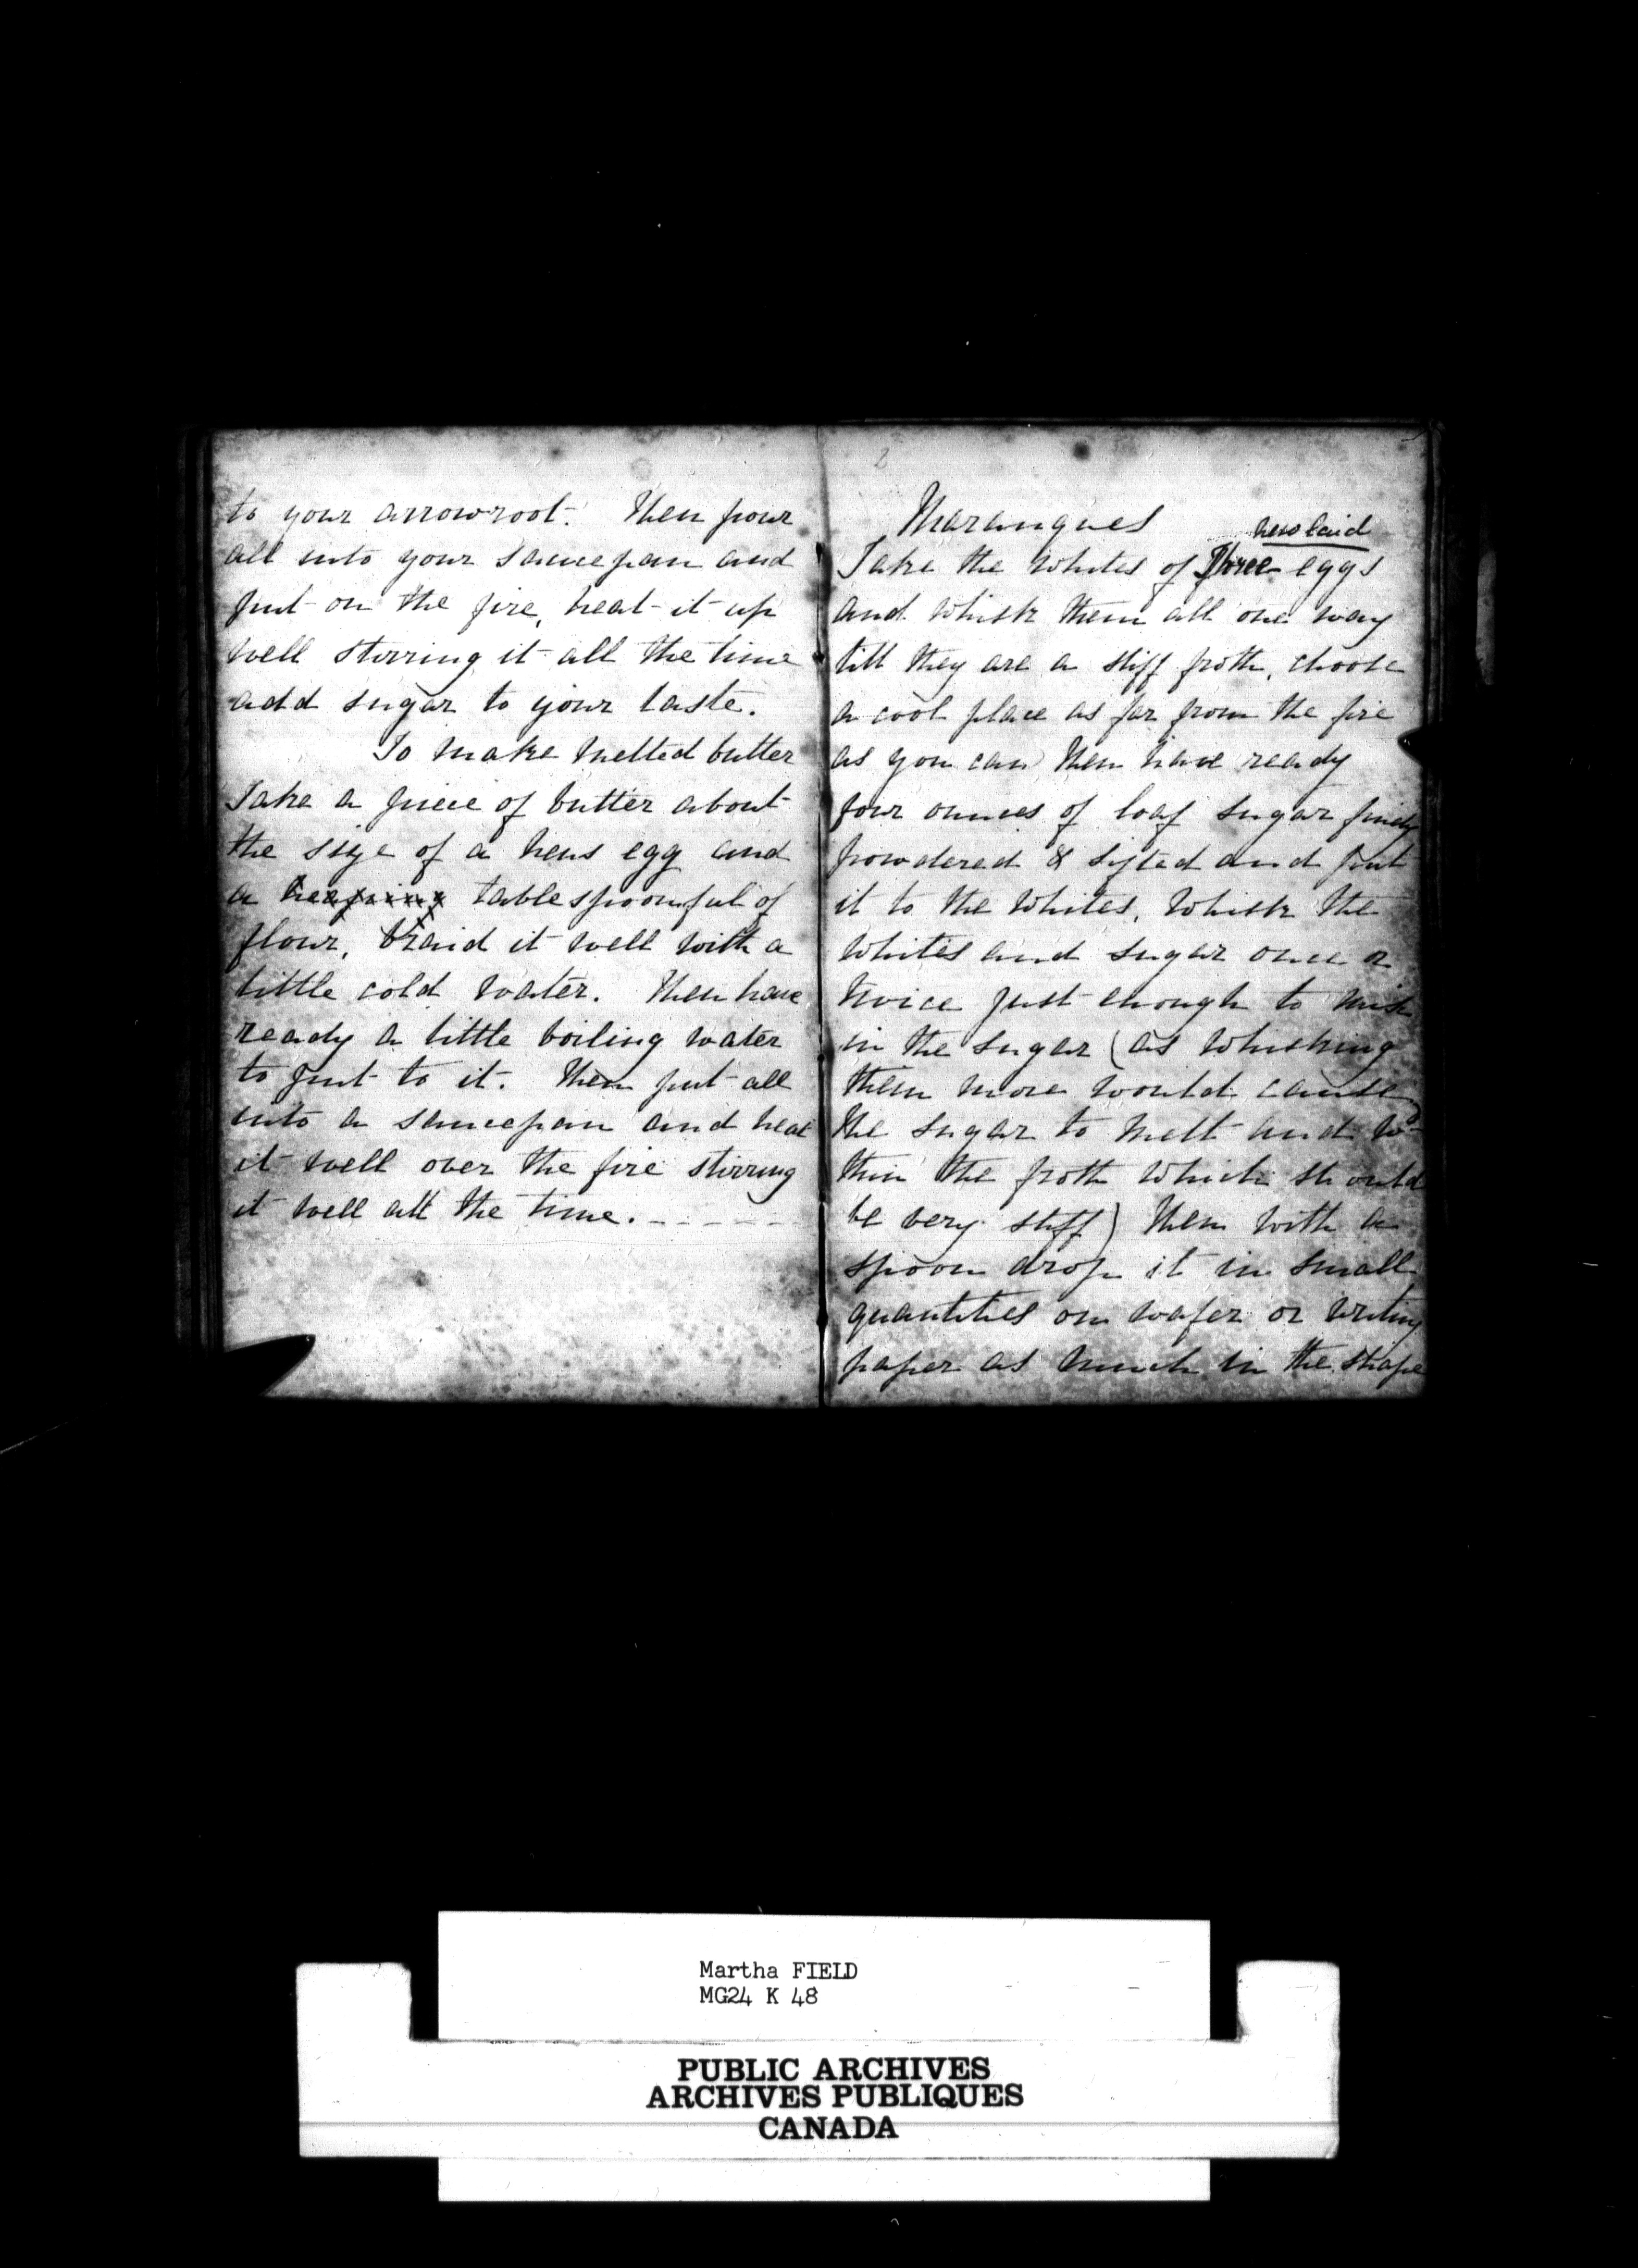 to your arrowroot. Then pour
all into your saucepan and
put on the fire, heat it up
well stirring it all the time
add sugar to your taste.
To make melted butter
Take a piece of butter about
the size of a hens egg and
a heaping tablespoonful of
flour, braid it well with a
little cold water. Then have
ready a little boiling water
to put to it. Then put all
into a saucepan and heat
it well over the fire stirring
it well all the time.
2
Marangues
new laid
Take the whites of Three eggs
and whisk them all one way
till they are a stiff froth, choose
a cool place as far from the fire
as you can, then have ready
four ounces of loaf sugar finely
powdered & sifted and put
it to the whites, whisk the
whites and sugar once or
twice just enough to mix
in the sugar (as whisking
them more would cause
the sugar to melt and
thin the froth which should
be very stiff) then with a
spoon drop it in small
quantities on wafer or writing
paper as much in the shape
Martha FIELD
MG24 K 48
PUBLIC ARCHIVES
ARCHIVES PUBLIQUES
CANADA